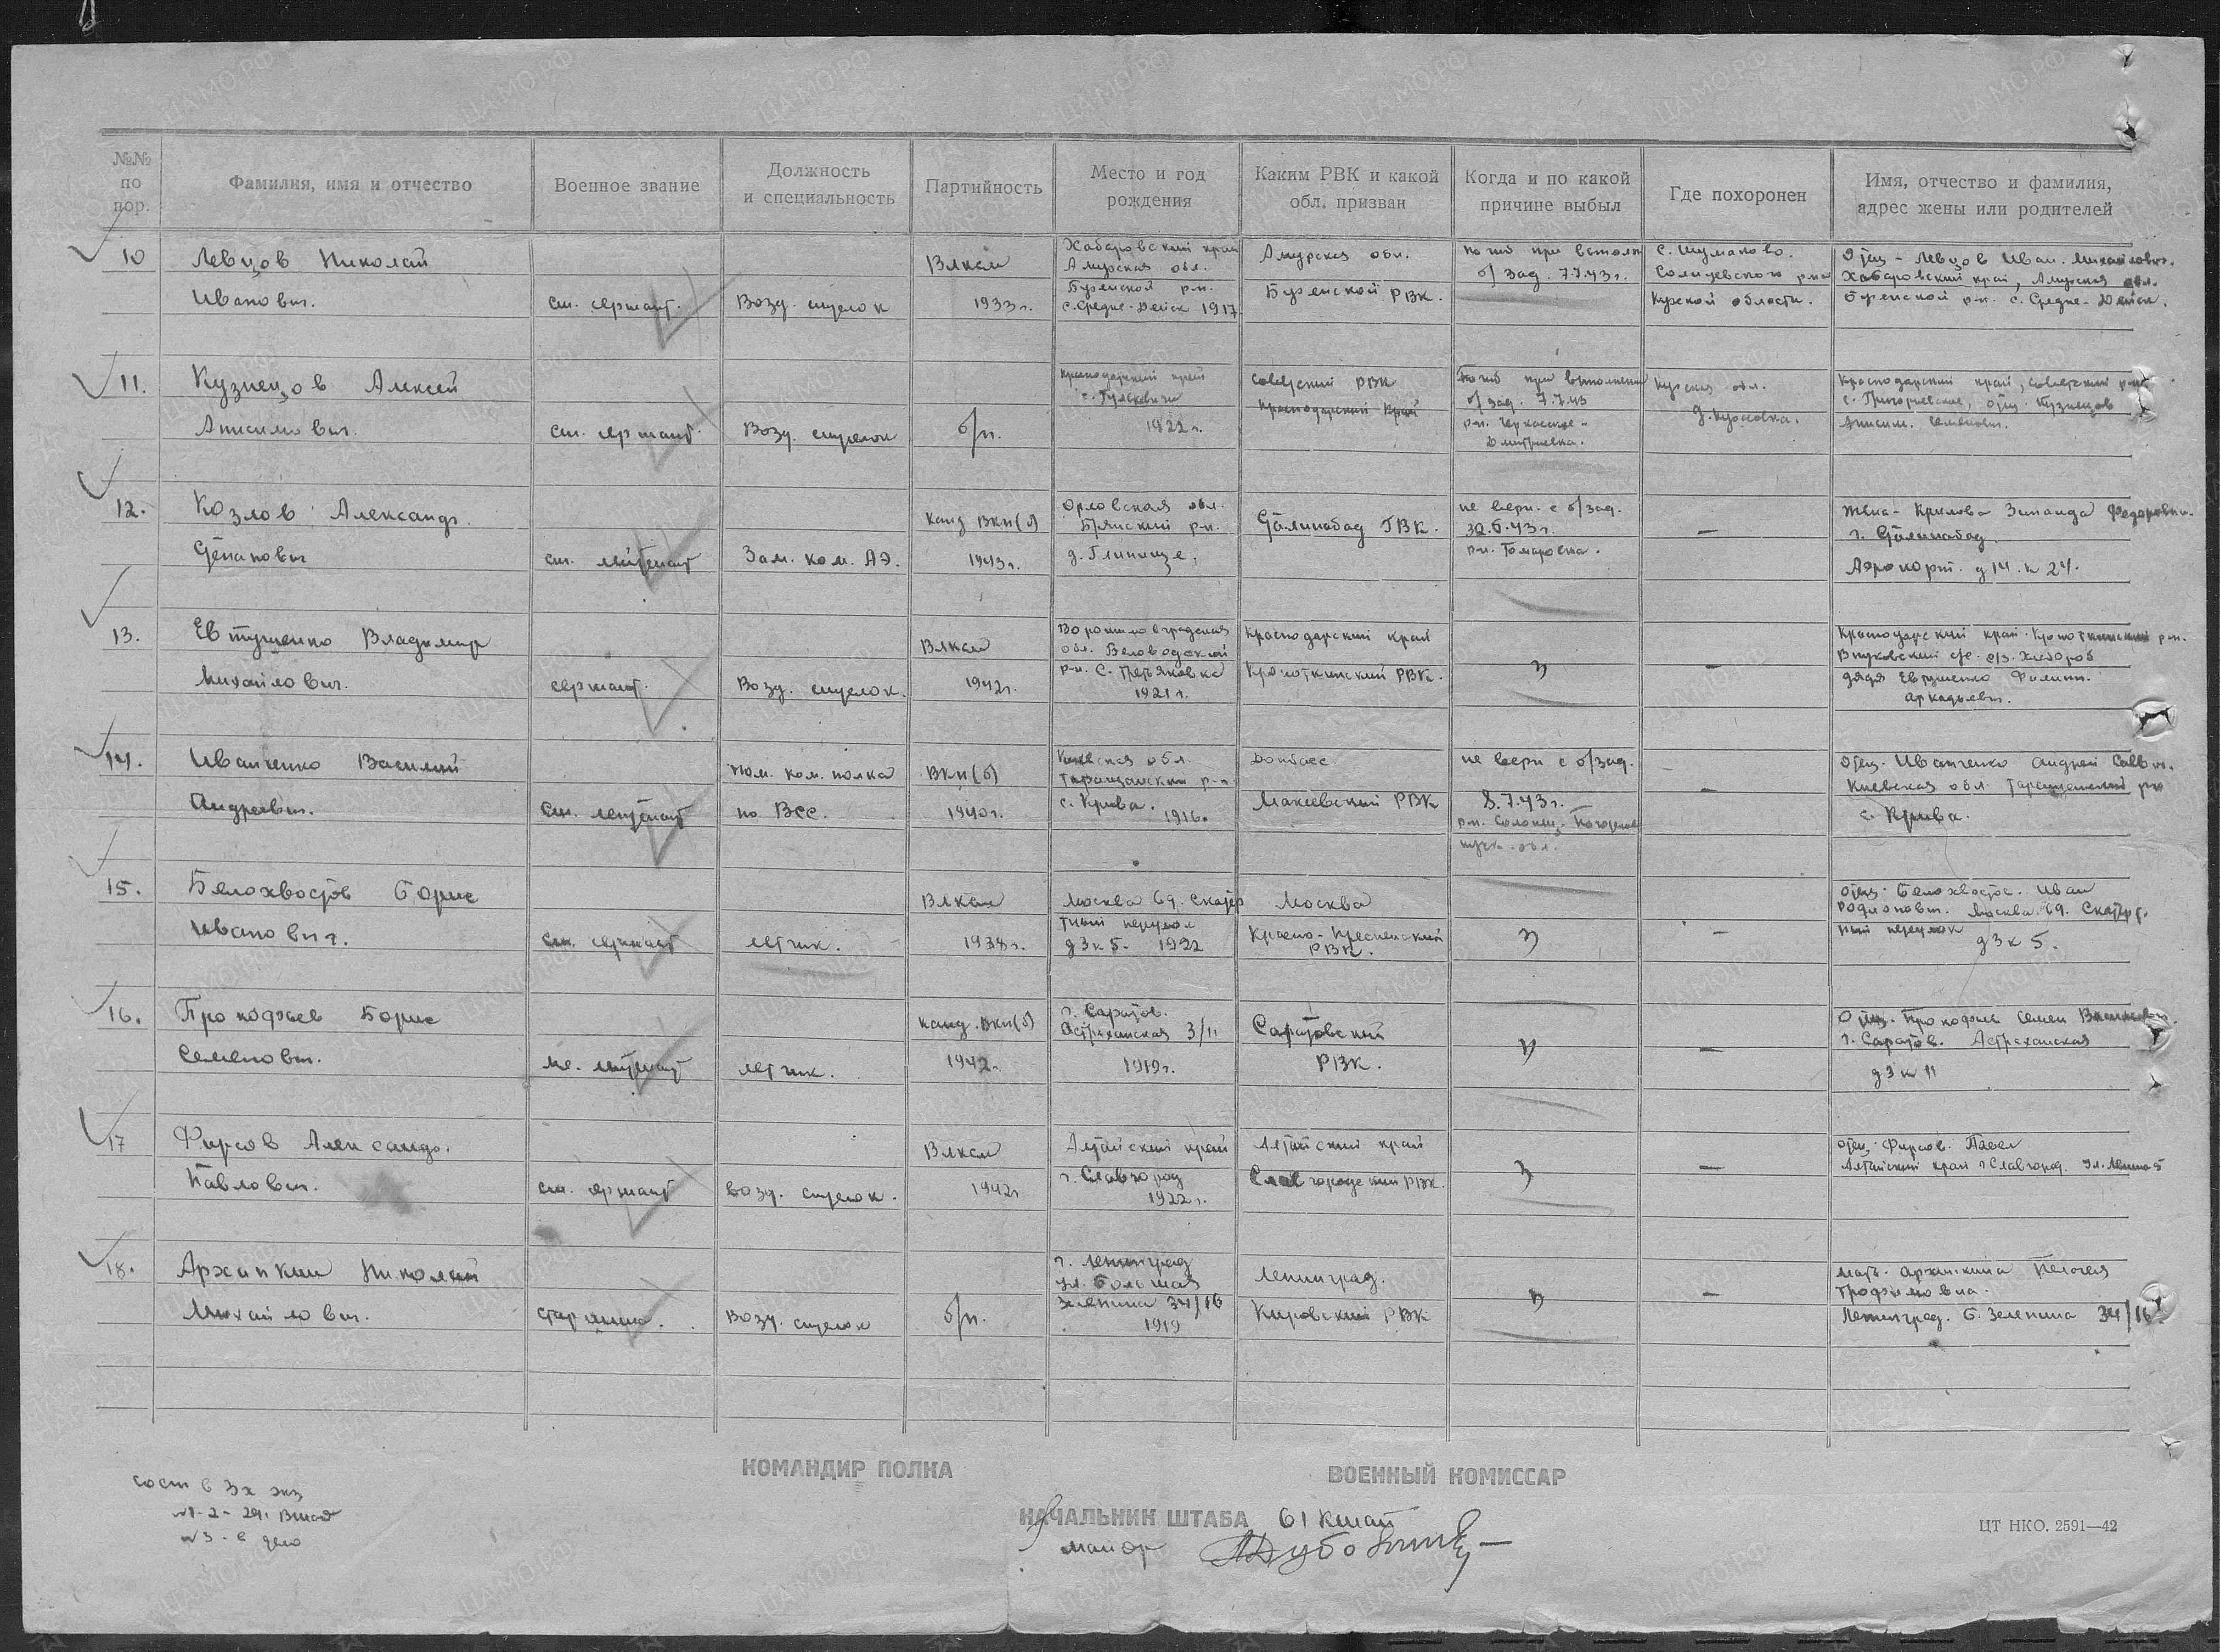 №№ по пор.
Фамилия, имя и отчество
Военное звание
Должность и специальность
Партийность
Место и год рождения
Каким РВК и какой обл. призван
Когда и по какой причине выбыл
Где похоронен
Имя, отчество и фамилия, адрес жены или родителей
10
Левцов Николай
Иванович.
ст. сержант.
Возд. стрелок
Влксм
1933 г.
Хабаровский край
Амурская обл.
Буреиской р-н.
с. Средне-Дейск 1917
Амурская обл.
Буреиской РВК.
б/зад. 7.7.43 г.
с. Шумаково.
Солнцевского р-на
Курской области.
Отец - Левцов Иван. Михайлович.
Хабаровский край, Амурская обл.
Буреиской р-н. с. Средне-Дейск.
11.
Кузнецов Алексей
Анисимович.
ст. сержант.
Возд. стрелок
б/п.
Краснодарский край
1922 г.
Советский РВК
Краснодарский край
Погиб при выполнении
б/зад. 7.7.43
р-н. Черкасское -
Дмитриевка.
Курская обл.
Краснодарский край, Советский р-н
отец. Кузнецов
Анисим. Семенович.
12.
Козлов Александр.
Степанович
ст. лейтенант
Зам. ком. АЭ.
канд ВКП(б)
1943 г.
Орловская обл.
Брянский р-н.
д. Глинище,
Сталинабад ГВК.
не верн. с б/зад.
р-н. Томаровка.
—
Жена - Крилова Зинаида Федоровн.
г. Сталинабад.
Аэропорт. д 14. к 24.
13.
Евтушенко Владимир
Михайлович.
сержант.
Возд. стрелок.
Влксм
1942 г.
Ворошиловградская
обл. Беловодский
р-н. с. Третьяковка
1921 г.
Краснодарский край
Кропоткинский РВК.
"
—
Краснодарский край. Кропоткинский р-н.
дядя Евтушенко Филипп.
Аркадьевич.
14.
Иванченко Василий
Андреевич.
ст. лейтенант
пом. ком. полка
по ВСС.
ВКП(б)
1940 г.
Киевская обл.
Таращанский р-н
с. Крива.
1916.
Донбасс.
Макеевский РВК
не верн с б/зад.
8.7.43 г.
курс. обл.
—
Отец. Иванченко Андрей Савв.
Киевская обл. Таращанский р-н
с. Крива.
15.
Белохвостов Борис
Иванович.
ст. сержант
летчик.
Влксм
1938 г.
Москва 69. Скатер
тный переулок
д 3 к 5. 1922
Москва
Красно-Пресненский
РВК.
"
—
отец. Белохвостов. Иван
Родионович. Москва. 69. Скатерт.
ный переулок
д 3 к 5.
16.
Прокофьев Борис
Семенович.
мл. лейтенант
летчик.
канд. ВКП(б)
1942 г.
г. Саратов.
Астраханская 3/11
1919 г.
Саратовский
РВК.
"
—
г. Саратов. Астраханская
д 3 к 11
17
Фирсов Александр.
Павлович.
ст. сержант
возд. стрелок.
Влксм
1942 г
Алтайский край
г. Славгород
1922 г.
Алтайский край
Славгородский РВК.
"
—
отец. Фирсов. Павел
Алтайский край г. Славгород.
18.
Архипкин Николай
Михайлович.
старшина.
Возд. стрелок
б/п.
г. Ленинград
ул. Большая
Зеленина 34/16
1919
Ленинград.
Кировский РВК
"
—
мать. Архипкина Пелагея
Трофимовна.
Ленинград. Б. Зеленина 34/16
КОМАНДИР ПОЛКА
ВОЕННЫЙ КОМИССАР
сост в 3х экз
№ 3 - в дело
НАЧАЛЬНИК ШТАБА 61 Кшап
майор
ЦТ НКО. 2591—42
ЦАМО.РФ